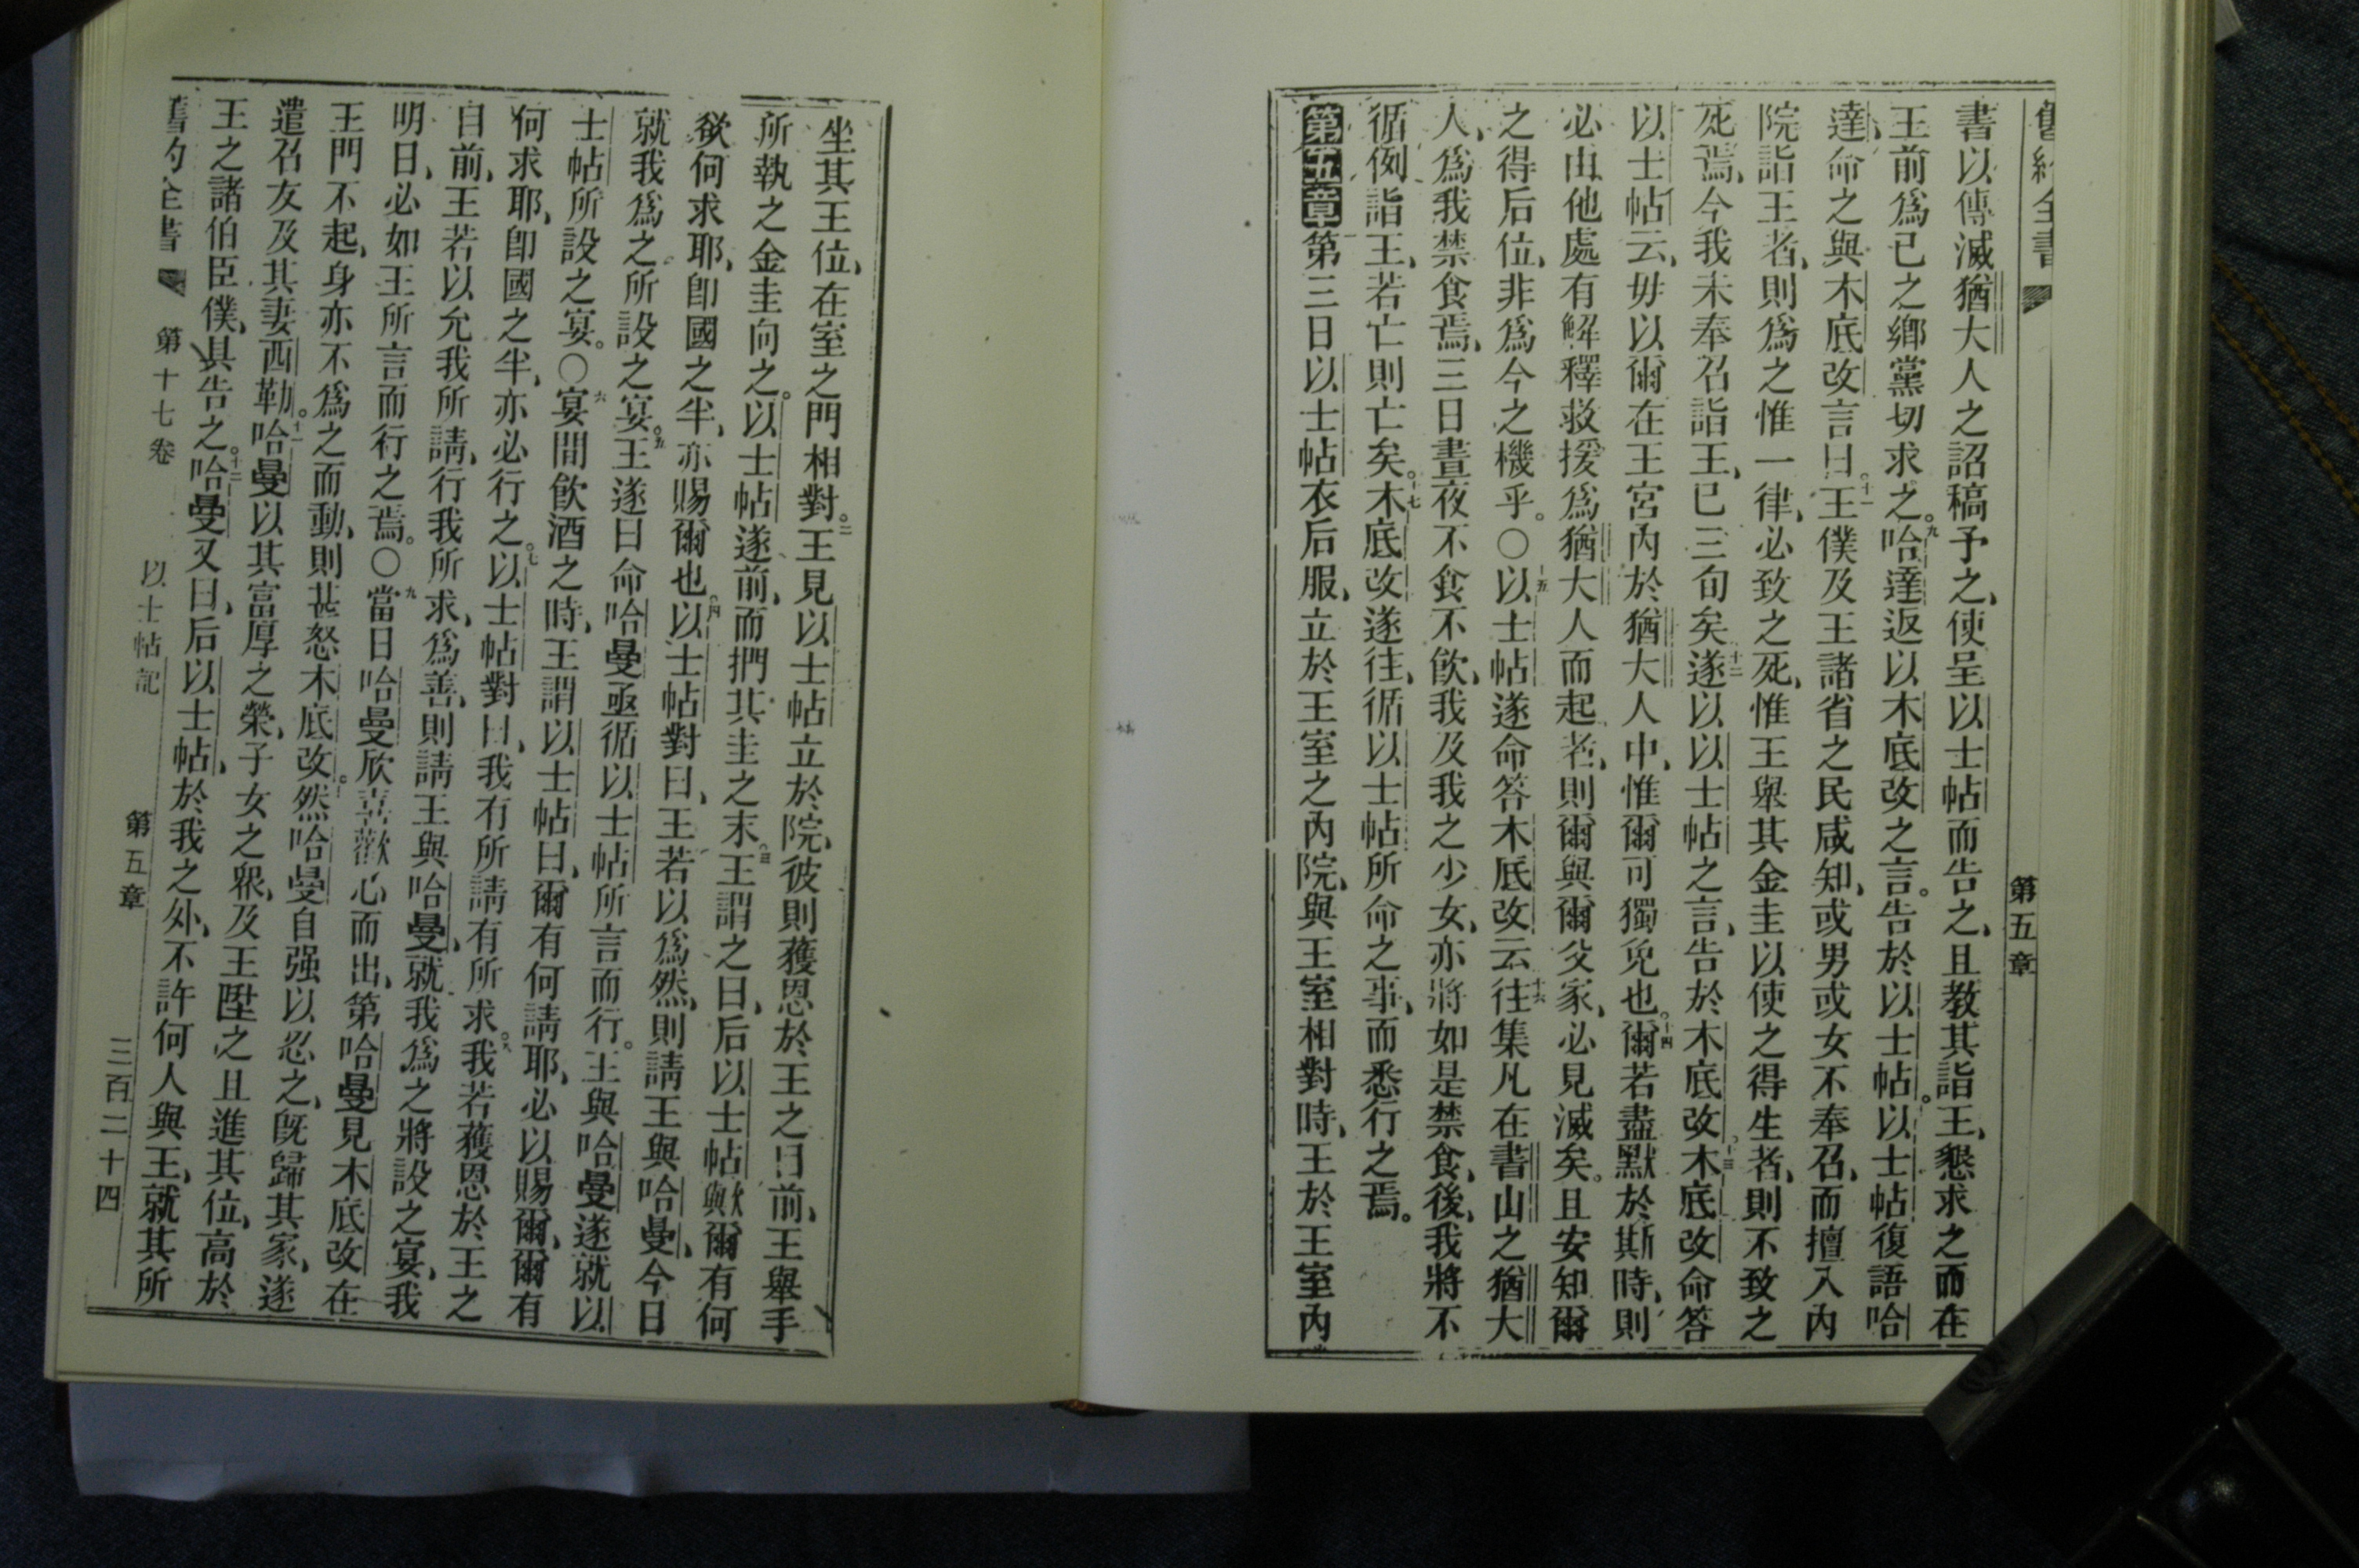 舊約全書
第五章
書以傳滅猶大人之詔稿予之、使呈以士帖而告之、且教其詣王、懇求之而在
王前爲已之鄉黨切求之。九哈達返以木底改之言。告於以士帖。以士帖復語哈
達、命之與木底改言曰。十一王僕及王諸省之民咸知、或男或女不奉召、而擅入內
院詣王者、則爲之惟一律、必致之死、惟王舉其金圭以使之得生者、則不致之
死焉、今我未奉召詣王、已三旬矣。十二遂以以士帖之言、告於木底改。十三木底改命答
以士帖云、毋以爾在王宮內於猶大人中、惟爾可獨免也。十四爾若盡默於斯時、則
必由他處有解釋救援爲猶大人而起者、則爾與爾父家、必見滅矣。且安知爾
之得后位、非爲今之機乎。〇十五以士帖遂命答木底改云、十六往集凡在書山之猶大
人、爲我禁食焉、三日晝夜不食不飲、我及我之少女、亦將如是禁食、後、我將不
循例詣王、若亡則亡矣。十七木底改遂往、循以士帖所命之事、而悉行之焉。
第五章第三日以士帖衣后服、立於王室之內院、與王室相對時、王於王室內
坐其王位、在室之門相對。二王見以士帖立於院、彼則獲恩於王之目前、王舉手
所執之金圭向之。以士帖遂前、而捫其圭之末。三王謂之曰、后以士帖歟、爾有何
欲何求耶、卽國之半、亦賜爾也。四以士帖對曰、王若以爲然、則請王與哈曼、今日
就我爲之所設之宴。五王遂曰命哈曼亟循以士帖所言而行。王與哈曼遂就以
士帖所設之宴。〇六宴間飮酒之時、王謂以士帖曰、爾有何請耶、必以賜爾、爾有
何求耶、卽國之半、亦必行之。七以士帖對曰、我有所請有所求。八我若獲恩於王之
目前、王若以允我所請、行我所求、爲善、則請王與哈曼、就我爲之將設之宴、我
明日、必如王所言而行之焉。〇九當日哈曼欣喜歡心而出、第哈曼見木底改在
王門不起、身亦不爲之而動、則甚怒木底改。十然哈曼自强以忍之、旣歸其家、遂
遣召友及其妻西勒。十一哈曼以其富厚之榮、子女之眾、及王陞之且進其位、高於
王之諸伯臣僕、具告之。十二哈曼又曰、后以士帖、於我之外、不許何人與王、就其所
舊約全書
第十七卷
以士帖記
第五章
三百二十四